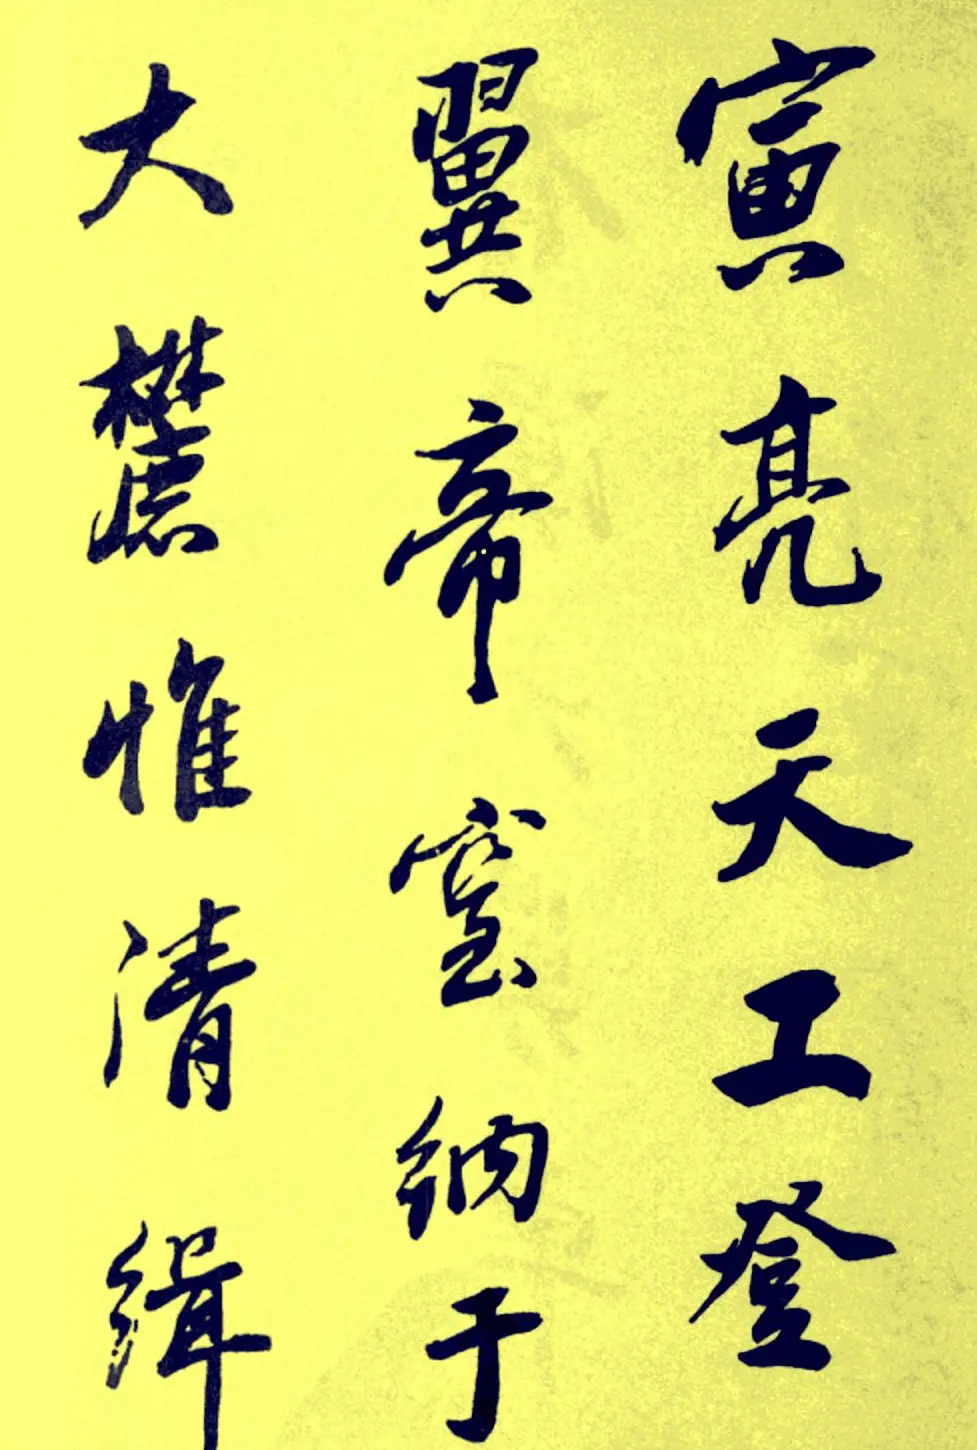 寅亮天工登
翼帝室納于
大麓惟清緝